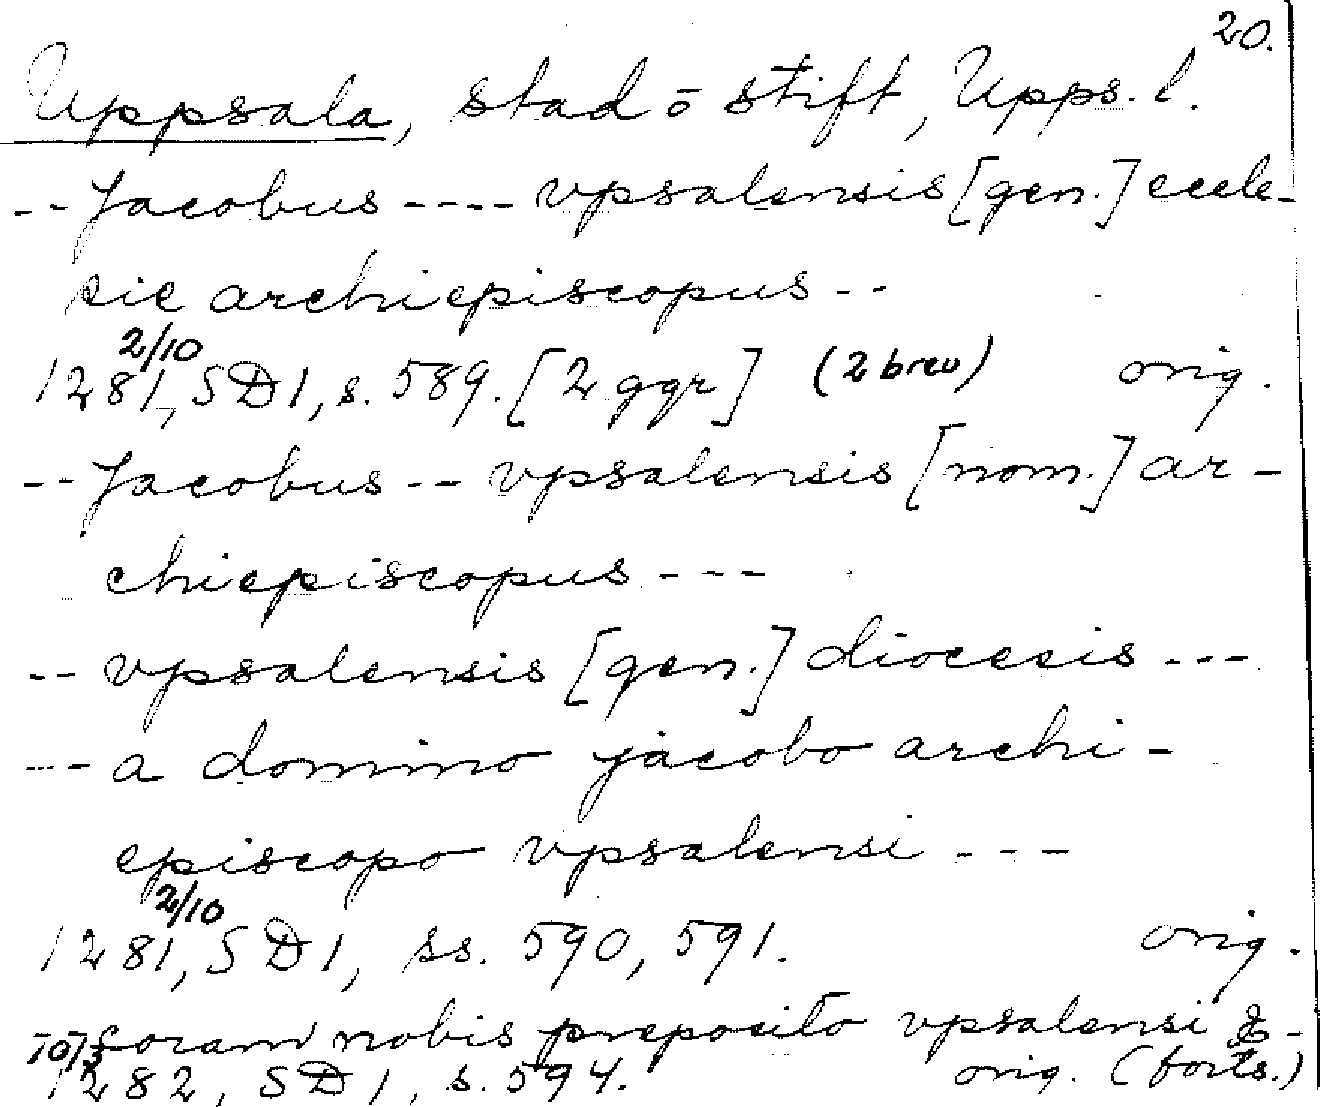 20.
Uppsala, stad o stift, Upps. l.
-- Jacobus ---- vpsalensis [gen.] eccle-
sie archiepiscopus --
2/10
1281, SD1, s. 589. [2 ggr] (2 brev) orig.
-- Jacobus -- vpsalensis [nom.] ar-
chiepiscopus ---
-- vpsalensis [gen.] diocesis ---
--- a domino jacobo archi-
episcopo vpsalensi ---
2/10
1281, SD1, ss. 590, 591. orig.
coram nobis preposito vpsalensi &-
10/3
1282, SD1, s. 594. orig. (forts.)